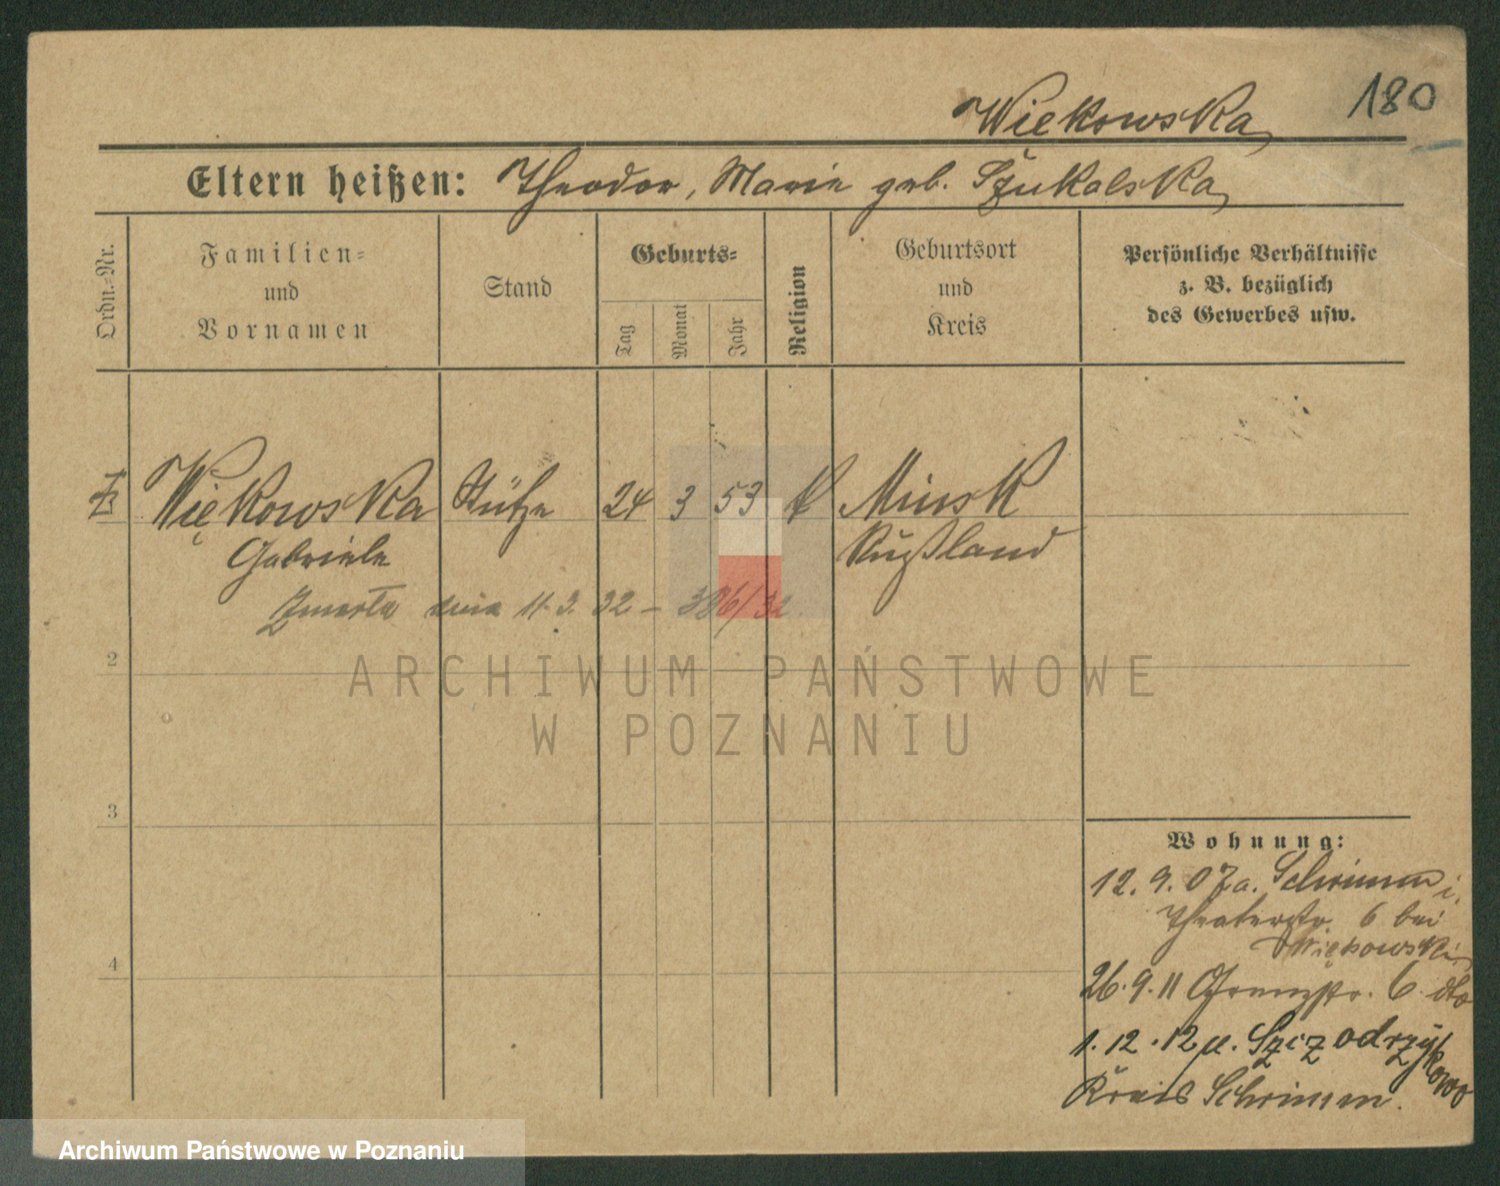 180
Wiekowska
Eltern heißen: Theodor, Marie geb. Szukalska
Ordn.-Nr.
Familien-
und
Vornamen
Stand
Geburts-
Tag
Monat
Jahr
Religion
Geburtsort
und
Kreis
Persönliche Verhältnisse
z. B. bezüglich
des Gewerbes usw.
Więkowska Stütze 24 3 53 Minsk
Gabriele Rußland
Zmarła dnia 11.3.32 – 386/32.
2
ARCHIWUM PAŃSTWOWE
W POZNANIU
3
4
Wohnung:
12.9.07 a. Schrimm i.
Theaterstr. 6 bei
Więkowski
26.9.11 Grenzstr. 6. dto
1.12.12 n. Szczodrzykowo
Kreis Schrimm.
Archiwum Państwowe w Poznaniu